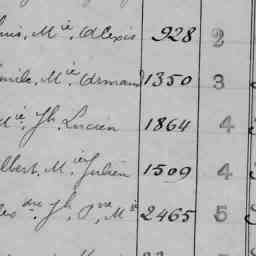 uis, M.ie, Alexis 928 2
mile, M.ie Armand 1350 3
M.ie, Jh, Lucien 1864 4
lbert, M.ie Julien 1509 4
lex.dre Jh, P.rre, M.ie 2465 5